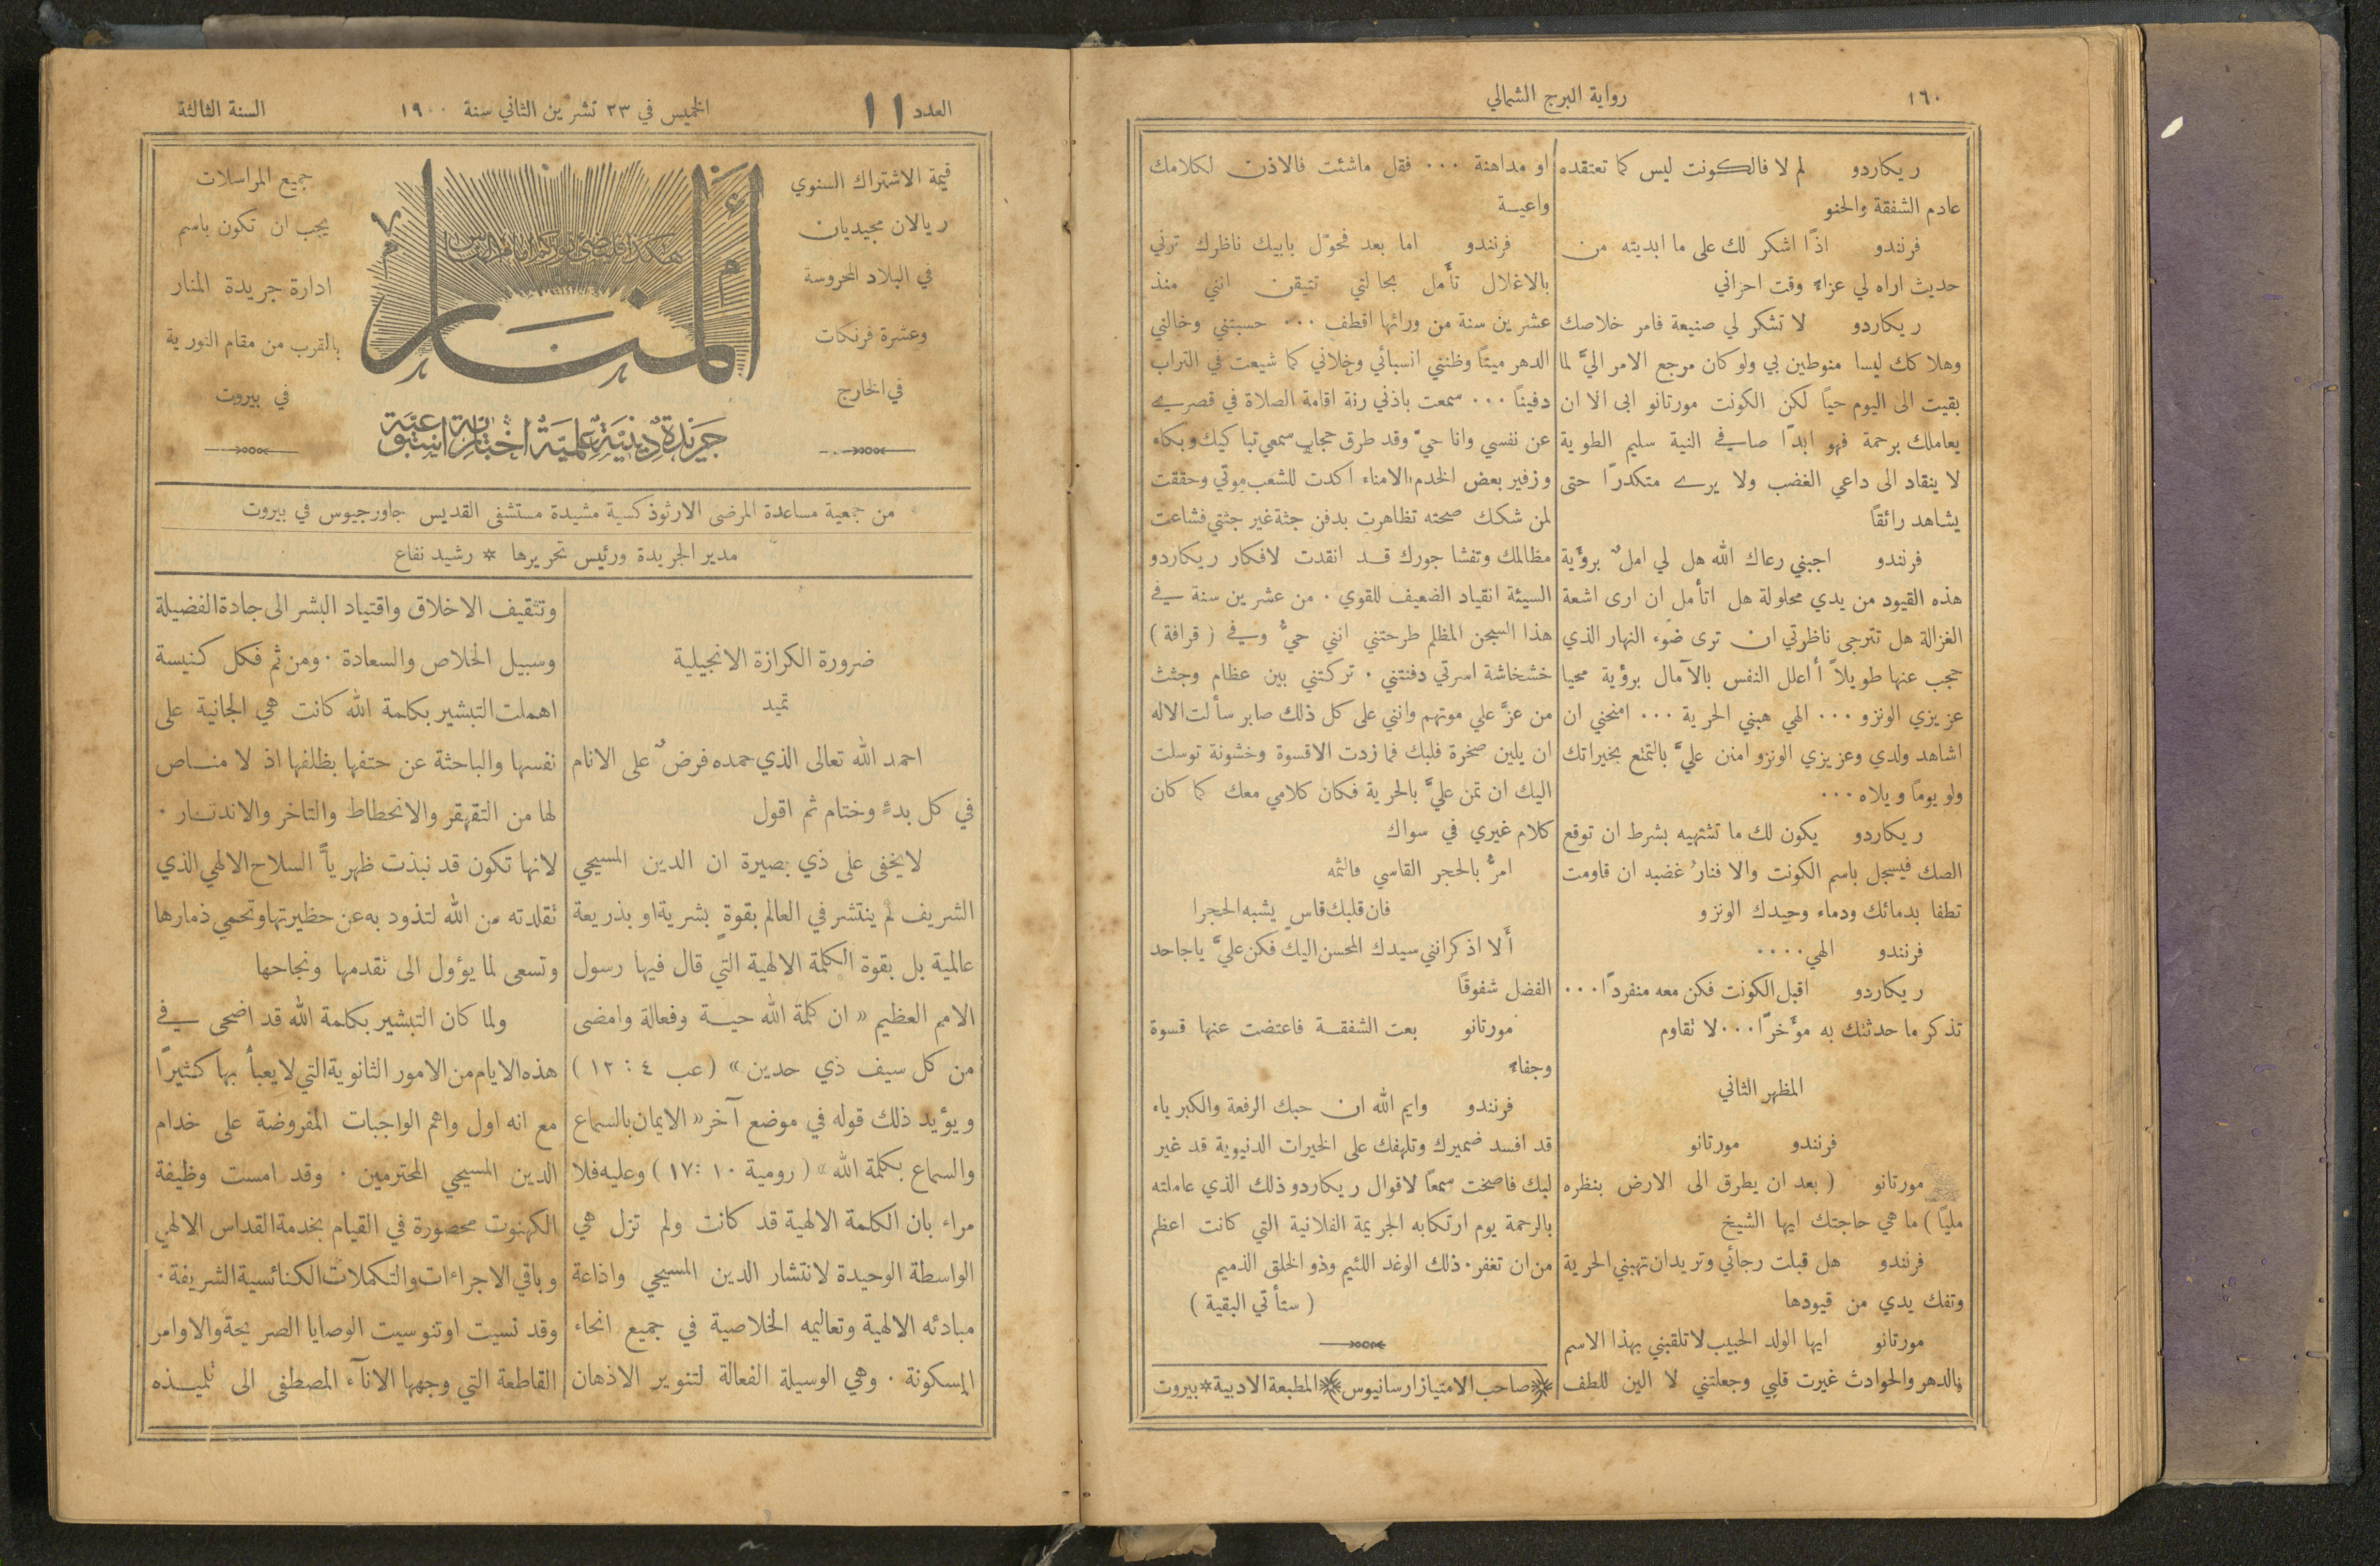 ١٦٠
رواية البرج الشمالي
ريكاردو لم لا فالكونت ليس كما تعتقده
عادم الشفقة والحنو
فرنندو اذًا اشكر لك على ما ابديته من
حديث اراه لي عزاءً وقت احزاني
ريكاردو لا تشكر لي صنيعة فامر خلاصك
وهلاكك ليسا منوطين بي ولو كان مرجع الامر اليَّ لما
بقيت الى اليوم حياً لكن الكونت مورتانو ابى الا ان
يعاملك برحمة فهو ابدًا صافي النية سليم الطوية
لا ينقاد الى داعي الغضب ولا يرے متكدرًا حتى
يشاهد رائقاً
فرنندو اجبني رعاك الله هل لي املٌ برؤية
هذه القيود من يدي محلولة هل اتأمل ان ارى اشعة
الغزالة هل تترجى ناظرتي ان ترى ضوء النهار الذي
حجب عنها طويلاً أاعلل النفس بالآمال برؤية محيا
عزيزي الونزو ... الهي هبني الحرية ... امنحني ان
اشاهد ولدي وعزيزي الونزو امنن عليَّ بالتمتع بخيراتك
ولو يوماً ويلاه ...
ريكاردو يكون لك ما تشتهيه بشرط ان توقع
الصك فيسجل باسم الكونت والا فنارُ غضبه ان قاومت
تطفا بدمائك ودماء وحيدك الونزو
فرنندو الهي ....
ريكاردو اقبل الكونت فكن معه منفردًا ...
تذكر ما حدثتك به مؤخرًا ... لا تقاوم
المظهر الثاني
فرنندو مورتانو
مورتانو ( بعد ان يطرق الى الارض بنظره
ملياً ) ما هي حاجتك ايها الشيخ
فرنندو هل قبلت رجائي وتريدان تهبني الحرية
وتفك يدي من قيودها
مورتانو ايها الولد الحبيب لا تلقبني بهذا الاسم
فالدهر والحوادث غيرت قلبي وجعلتني لا الين للطف
او مداهنة ... فقل ماشئت فالاذن لكلامك
واعية
فرنندو اما بعد فحوّل بابيك ناظرك ترني
بالاغلال تأمل بحالتي تتيقن انني منذ
عشرين سنة من ورائها اقطف ... حسبتني وخالني
الدهر ميتاً وظنني انسبائي وخلاني كما شيعت في التراب
دفيناً ... سمعت باذني رنة اقامة الصلاة في قصرے
عن نفسي وانا حيّ وقد طرق حجاب سمعي تباكيك وبكاء
وزفير بعض الخدم الامناء اكدت للشعب موتي وحققت
لمن شكك صحته تظاهرت بدفن جثة غير جثتي فشاعت
مظالمك وتفشا جورك قد انقدت لافكار ريكاردو
السيئة انقياد الضعيف للقوي . من عشرين سنة في
هذا السجن المظلم طرحتني انني حيٌّ وفي ( قرافة )
خشخاشة اسرتي دفنتني . تركتني بين عظام وجثث
من عزَّ علي موتهم وانني على كل ذلك صابر سألت الاله
ان يلين صخرة قلبك فما زدت الا قسوة وخشونة توسلت
اليك ان تمن عليَّ بالحرية فكان كلامي معك كما كان
كلام غيري في سواك
امرُّ بالحجر القاسي فالثمه
فان قلبك قاسٍ يشبه الحجرا
أَلا اذكر انني سيدك المحسن اليك فكن عليَّ ياجاحد
الفضل شفوقًا
مورتانو بعت الشفقة فاعتضت عنها قسوة
وجفاءً
فرنندو وايم الله ان حبك الرفعة والكبرياء
قد افسد ضميرك وتلهفك على الخيرات الدنيوية قد غير
لبك فاصخت سمعاً لاقوال ريكاردو ذلك الذي عاملته
بالرحمة يوم ارتكابه الجريمة الفلانية التي كانت اعظم
من ان تغفر . ذلك الوغد اللئيم وذو الخلق الذميم
( ستأتي البقية )
صاحب الامتياز ارسانيوس المطبعة الادبية * بيروت
العدد ١١
الخميس في ٢٣ تشرين الثاني سنة ١٩٠٠
السنة الثالثة
قيمة الاشتراك السنوي
ريالان مجيديان
في البلاد المحروسة
وعشرة فرنكات
في الخارج
هكذا فليضئ نوركم امام الناس
المنار
جريدة دينية علمية اخبارية اسبوعية
جميع المراسلات
يجب ان تكون باسم
ادارة جريدة المنار
بالقرب من مقام النورية
في بيروت
من جمعية مساعدة المرضى الارثوذكسية مشيدة مستشفى القديس جاورجيوس في بيروت
مدير الجريدة ورئيس تحريرها * رشيد نفاع
ضرورة الكرازة الانجيلية
تميد
احمد الله تعالى الذي حمده فرضٌ على الانام
في كل بدءٍ وختام ثم اقول
لا يخفى على ذي بصيرة ان الدين المسيحي
الشريف لم ينتشر في العالم بقوةٍ بشرية او بذريعة
عالمية بل بقوة الكلمة الالهية التي قال فيها رسول
الامم العظيم « ان كلمة الله حية وفعالة وامضى
من كل سيف ذي حدين » ( عب ٤ : ١٢ )
ويؤيد ذلك قوله في موضع آخر « الايمان بالسماع
والسماع بكلمة الله » ( رومية ١٠ :١٧ ) وعليه فلا
مراء بان الكلمة الالهية قد كانت ولم تزل هي
الواسطة الوحيدة لانتشار الدين المسيحي واذاعة
مبادئه الالهية وتعاليمه الخلاصية في جميع انحاء
المسكونة . وهي الوسيلة الفعالة لتنوير الاذهان
وتثقيف الاخلاق واقتياد البشر الى جادة الفضيلة
وسبيل الخلاص والسعادة . ومن ثم فكل كنيسة
اهملت التبشير بكلمة الله كانت هي الجانية على
نفسها والباحثة عن حتفها بظلفها اذ لا مناص
لها من التقهقر والانحطاط والتاخر والاندثار .
لانها تكون قد نبذت ظهرياً السلاح الالهي الذي
تقلدته من الله لتذود به عن حظيرتها وتحمي ذمارها
وتسعى لما يؤول الى تقدمها ونجاحها
ولما كان التبشير بكلمة الله قد اضحى في
هذه الايام من الامور الثانوية التي لا يعبأ بها كثيرًا
مع انه اول واهم الواجبات المفروضة على خدام
الدين المسيحي المحترمين . وقد امست وظيفة
الكهنوت محصورة في القيام بخدمة القداس الالهي
وباقي الاجراءات والتكملات الكنائسية الشريفة .
وقد نسيت اوتنوسيت الوصايا الصريحة والاوامر
القاطعة التي وجهها الاناء المصطفى الى تلميذه